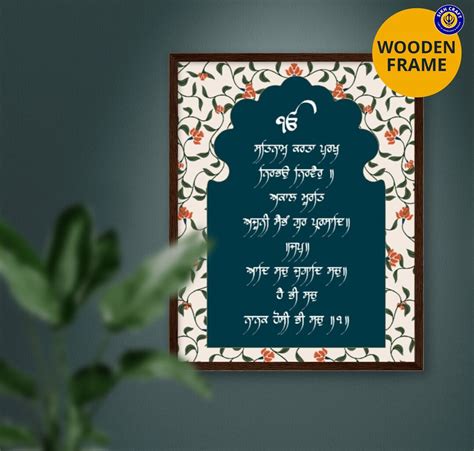 SIKH CRAFT
WOODEN
FRAME
ੴ
ਸਤਿਨਾਮੁ ਕਰਤਾ ਪੁਰਖੁ
ਨਿਰਭਉ ਨਿਰਵੈਰੁ ॥
ਅਕਾਲ ਮੂਰਤਿ
ਅਜੂਨੀ ਸੈਭੰ ਗੁਰ ਪ੍ਰਸਾਦਿ॥
॥ਜਪੁ॥
ਆਦਿ ਸਚੁ ਜੁਗਾਦਿ ਸਚੁ॥
ਹੈ ਭੀ ਸਚੁ
ਨਾਨਕ ਹੋਸੀ ਭੀ ਸਚੁ ॥੧॥